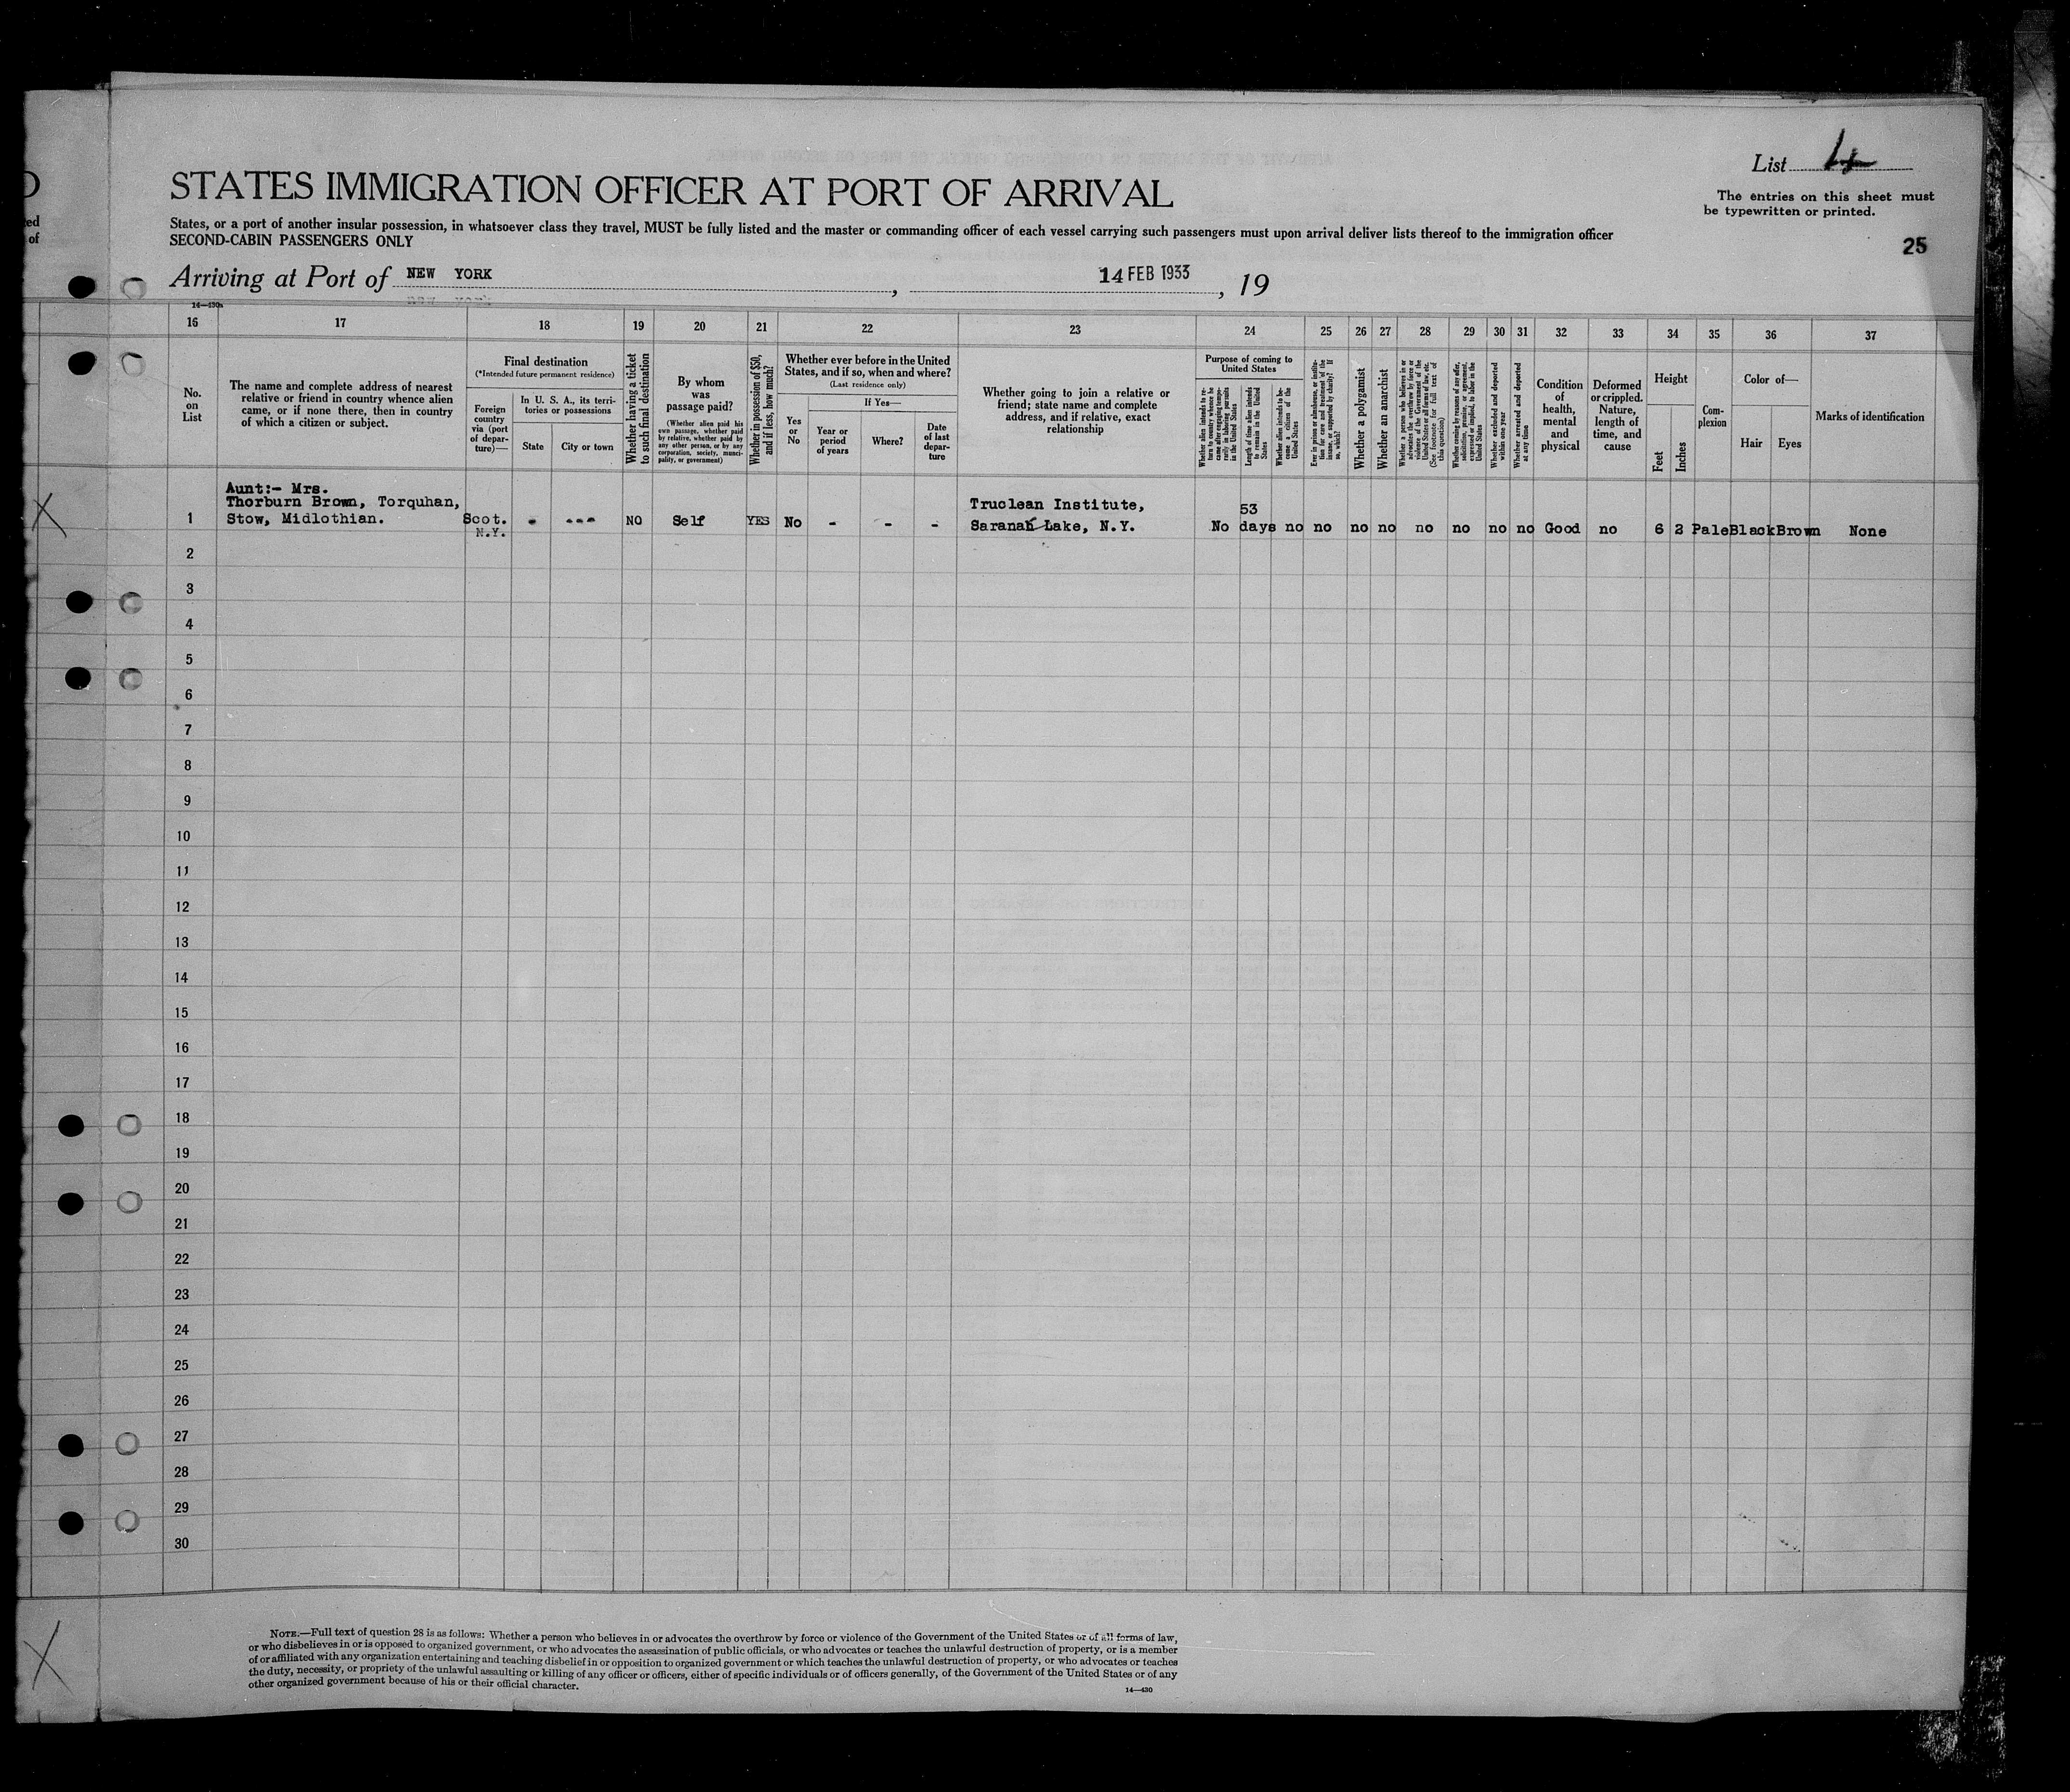 List 4
The entries on this sheet must
be typewritten or printed.
25
STATES IMMIGRATION OFFICER AT PORT OF ARRIVAL
States, or a port of another insular possession, in whatsoever class they travel, MUST be fully listed and the master or commanding officer of each vessel carrying such passengers must upon arrival deliver lists thereof to the immigration officer
SECOND-CABIN PASSENGERS ONLY
ed
of
Arriving at Port of NEW YORK, 14 FEB 1933, 19
16 17 18 19 20 21 22 23 24 25 26 27 28 29 30 31 32 33 34 35 36 37
No.
on
List
The name and complete address of nearest
relative or friend in country whence alien
came, or if none there, then in country
of which a citizen or subject.
Final destination
(*Intended future permanent residence)
Foreign
country
via (port
of depar-
ture)—
In U. S. A., its terri-
tories or possessions
State
City or town
Whether having a ticket
to such final destination
By whom
was
passage paid?
(Whether alien paid his
own passage, whether paid
by relative, whether paid by
any other person, or by any
corporation, society, munici-
pality, or government)
Whether in possession of $50,
and if less, how much?
Whether ever before in the United
States, and if so, when and where?
(Last residence only)
Yes
or
No
If Yes—
Year or
period
of years
Where?
Date
of last
depar-
ture
Whether going to join a relative or
friend; state name and complete
address, and if relative, exact
relationship
Purpose of coming to
United States
Whether alien intends to re-
turn to country whence he
came after engaging tempo-
rarily in laboring pursuits
in the United States
Length of time alien intends
to remain in the United
States
Whether alien intends to be-
come a citizen of the
United States
Ever in prison or almshouse, or institu-
tion for care and treatment of the
insane, or supported by charity? If
so, which?
Whether a polygamist
Whether an anarchist
Whether a person who believes in or
advocates the overthrow by force or
violence of the Government of the
United States or all forms of law, etc.
(See footnote for full text of
this question)
Whether coming by reasons of any offer,
solicitation, promise, or agreement,
expressed or implied, to labor in the
United States
Whether excluded and deported
within one year
Whether arrested and deported
at any time
Condition
of
health,
mental
and
physical
Deformed
or crippled.
Nature,
length of
time, and
cause
Height
Feet
Inches
Com-
plexion
Color of—
Hair Eyes
Marks of identification
Aunt:- Mrs.
Thorburn Brown, Torquhan,
Stow, Midlothian.
Truclean Institute,
Saranak Lake, N.Y.
53
1 Scot. - --- NO Self YES No - - - No days no no no no no no no no Good no 6 2 Pale Black Brown None
N.Y.
2
3
4
5
6
7
8
9
10
11
12
13
14
15
16
17
18
19
20
21
22
23
24
25
26
27
28
29
30
NOTE.—Full text of question 28 is as follows: Whether a person who believes in or advocates the overthrow by force or violence of the Government of the United States or of all forms of law,
or who disbelieves in or is opposed to organized government, or who advocates the assassination of public officials, or who advocates or teaches the unlawful destruction of property, or is a member
of or affiliated with any organization entertaining and teaching disbelief in or opposition to organized government or which teaches the unlawful destruction of property, or who advocates or teaches
the duty, necessity, or propriety of the unlawful assaulting or killing of any officer or officers, either of specific individuals or of officers generally, of the Government of the United States or of any
other organized government because of his or their official character.
14—430